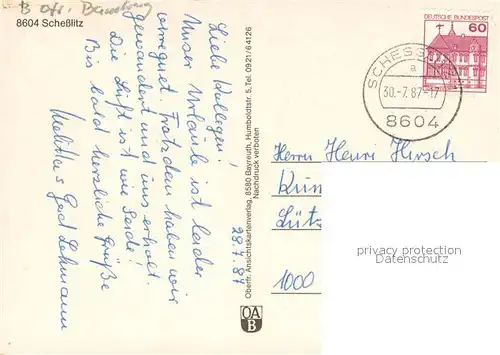 B Ofr. Bamberg
8604 Scheßlitz
28.7.87
Liebe Kollegen!
Unser Urlaub ist leider
verregnet. Trotzdem haben wir
gewandert und uns erholt.
Die Luft ist wie Seide!
Bis bald herzliche Grüße
Melitta & Gerd Lehmann
Oberfr. Ansichtskartenverlag, 8580 Bayreuth, Humboldtstr. 5, Tel. 0921/64126
Nachdruck verboten
OA
B
DEUTSCHE BUNDESPOST
60
SCHESSL
a
30.-7.87-17
8604
Herrn Henri Hirsch
Kun
Lüt
1000
privacy protection